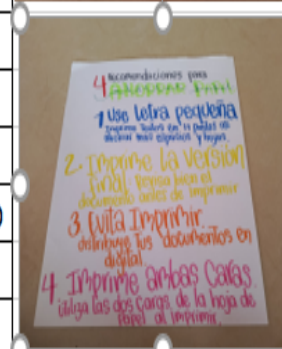 4 Recomendaciones para
AHORRAR PAPEL
1 Use letra pequeña
Imprime Textos en 11 puntos
espacios y hojas
2. Imprime la versión
final. Revisa bien el
documento antes de imprimir
3. Evita Imprimir.
distribuye Tus documentos en
digital.
4. Imprime ambas Caras.
utiliza las dos caras de la hoja de
Papel al imprimir.